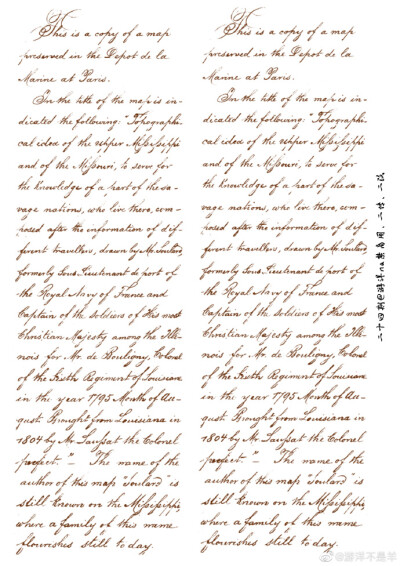 This is a copy of a map
preserved in the Depot de la
Marine at Paris.
In the title of the map is in-
dicated the following: "Topographi-
cal idea of the upper Mississippi
and of the Missouri, to serve for
the knowledge of a part of the sa-
vage nations, who live there, com-
posed after the information of dif-
ferent travellers, drawn by Mr. Soulard
formerly Sous-Lieutenant de port of
the Royal Navy of France and
Captain of the soldiers of His most
Christian Majesty among the Illi-
nois for Mr. de Bouligny, Colonel
of the Regiment of Louisiana
in the year 1795 Month of Au-
gust. Brought from Louisiana in
1804 by Mr. Laussat the Colonel
prefect." — The name of the
author of this map "Soulard" is
still known on the Mississippi,
where a family of this name
flourishes still to day.
This is a copy of a map
preserved in the Depot de la
Marine at Paris.
In the title of the map is in-
dicated the following: "Topographi-
cal idea of the upper Mississippi
and of the Missouri, to serve for
the knowledge of a part of the sa-
vage nations, who live there, com-
posed after the information of dif-
ferent travellers, drawn by Mr. Soulard
formerly Sous-Lieutenant de port of
the Royal Navy of France and
Captain of the soldiers of His most
Christian Majesty among the Illi-
nois for Mr. de Bouligny, Colonel
of the Regiment of Louisiana
in the year 1795 Month of Au-
gust. Brought from Louisiana in
1804 by Mr. Laussat the Colonel
prefect." — The name of the
author of this map "Soulard" is
still known on the Mississippi,
where a family of this name
flourishes still to day.
二十四 @游洋na禁商用、二传、二改
@游洋不是羊